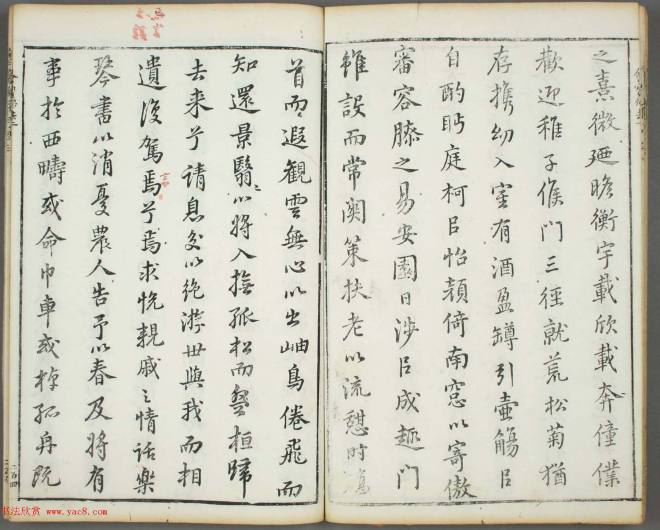 之熹微廼瞻衡宇載欣載奔僮僕
歡迎稚子候門三徑就荒松菊猶
存攜幼入室有酒盈罇引壺觴以
自酌眄庭柯以怡顏倚南窓以寄傲
審容膝之易安園日涉以成趣門
雖設而常關策扶老以流憩時矯
首而遐觀雲無心以出岫鳥倦飛而
知還景翳翳以將入撫孤松而盤桓歸
去来兮請息交以絶游世與我而相
遺復駕焉兮焉求悅親戚之情話樂
琴書以消憂農人告予以春及將有
事於西疇或命巾車或棹孤舟既
书法欣赏 www.yac8.com